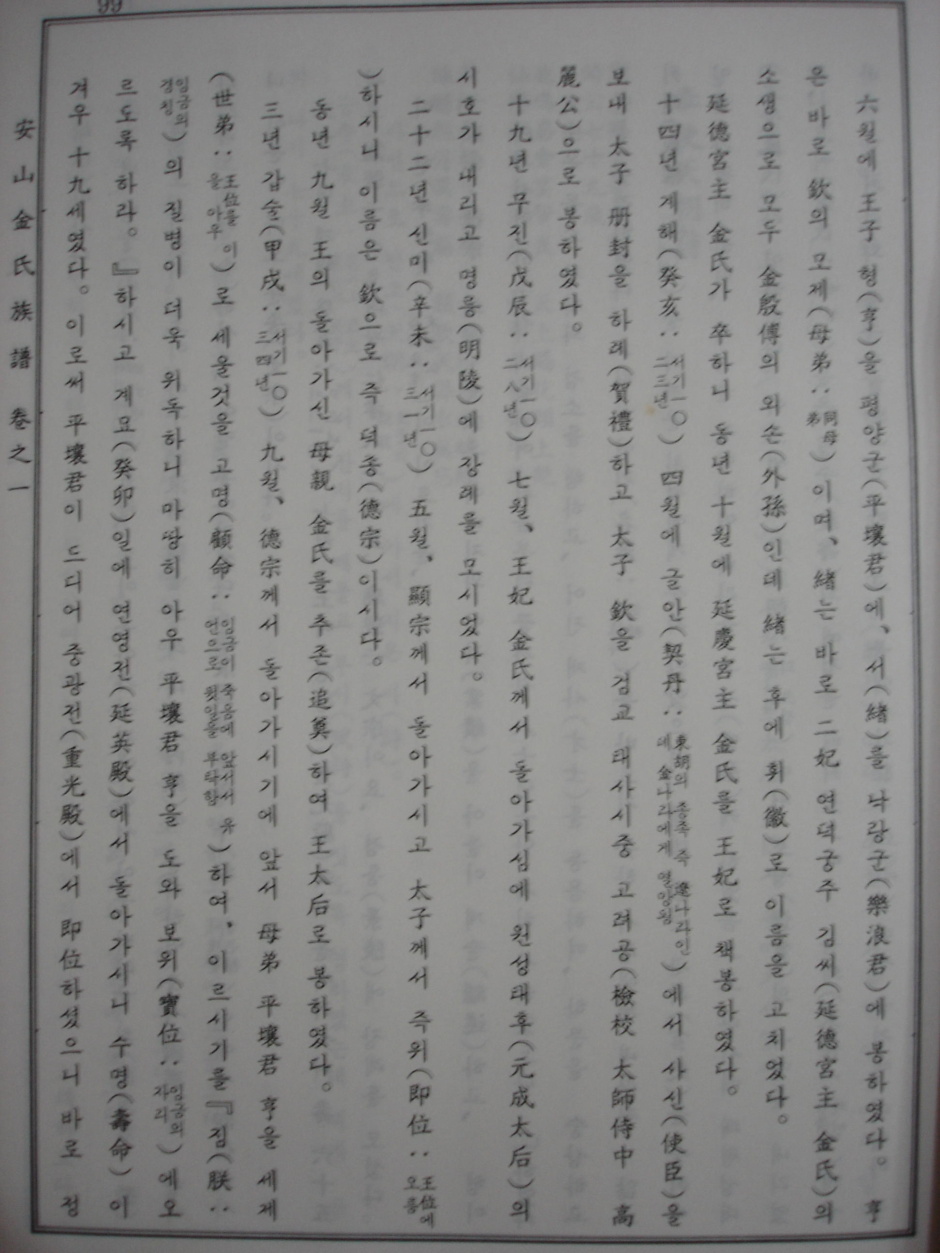 六월에 王子 형(亨)을 평양군(平壤君)에、서(緖)를 낙랑군(樂浪君)에 봉하였다。 亨
은 바로 欽의 모제(母弟:同母弟)이며、緖는 바로 二妃 연덕궁주 김씨(延德宮主 金氏)의
소생으로 모두 金殷傅의 외손(外孫)인데 緖는 후에 휘(徽)로 이름을 고치었다。
延德宮主 金氏가 卒하니 동년 十월에 延慶宮主 金氏를 王妃로 책봉하였다。
十四년 계해(癸亥:서기一〇二三년) 四월에 글안(契丹:東胡의 종족 즉 遼나라인데 金나라에게 멸망됨)에서 사신(使臣)을
보내 太子 册封을 하례(賀禮)하고 太子 欽을 검교 태사시중 고려공(檢校 太師侍中 高
麗公)으로 봉하였다。
十九년 무진(戊辰:서기一〇二八년) 七월、王妃 金氏께서 돌아가심에 원성태후(元成太后)의
시호가 내리고 명릉(明陵)에 장례를 모시었다。
二十二년 신미(辛未:서기一〇三一년) 五월、顯宗께서 돌아가시고 太子께서 즉위(即位:王位에오름
)하시니 이름은 欽으로 즉 덕종(德宗)이시다。
동년 九월 王의 돌아가신 母親 金氏를 추존(追奠)하여 王太后로 봉하였다。
三년 갑술(甲戌:서기一〇三四년) 九월、德宗께서 돌아가시기에 앞서 母弟 平壤君 亨을 세제
(世弟:王位를 이을 아우)로 세울것을 고명(顧命:임금이 죽음에 앞서서 유언으로 뒷일을 부탁함)하여、이르시기를『짐(朕:
임금의겸칭)의 질병이 더욱 위독하니 마땅히 아우 平壤君 亨을 도와 보위(寶位:임금의자리)에오
르도록 하라。』하시고 계묘(癸卯)일에 연영전(延英殿)에서 돌아가시니 수명(壽命)이
겨우 十九세였다。이로써 平壤君이 드디어 중광전(重光殿)에서 即位하셨으니 바로 정
安山金氏族譜 卷之一
99